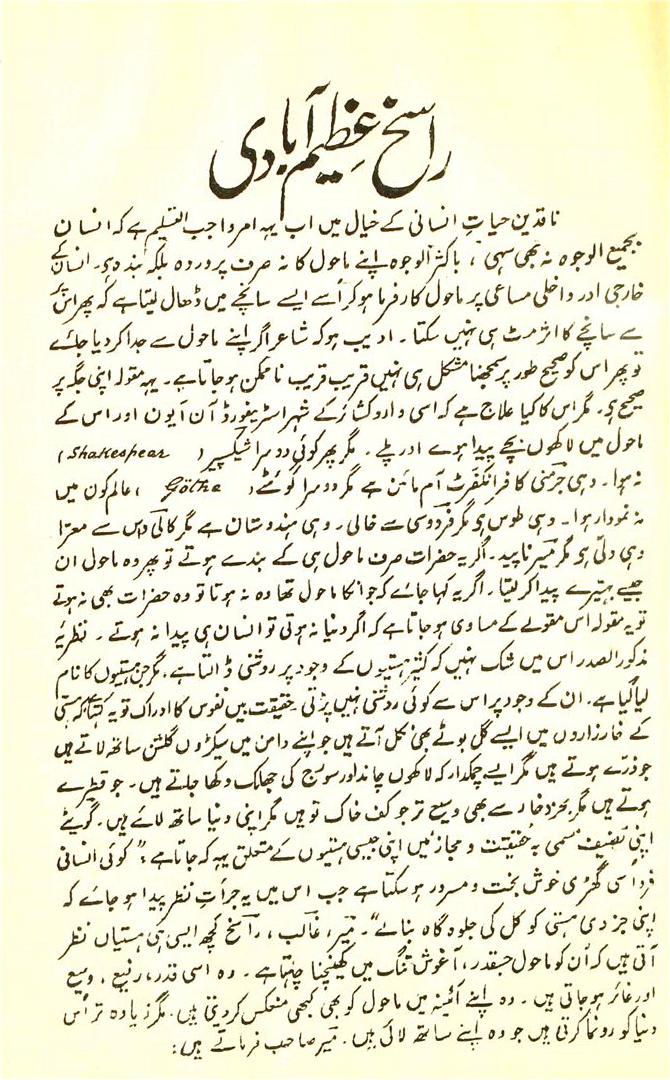 راسخ عظیم آبادی
ناقدین حیاتِ انسانی کے خیال میں اب یہہ امر واجب التسلیم ہے کہ انسان
بجمیع الوجوہ نہ بھی سہی، باکثر الوجوہ اپنے ماحول کا نہ صرف پروردہ بلکہ بندہ ہے۔ انسان کے
خارجی اور داخلی مساعی پر ماحول کارفرما ہو کر اُسے ایسے سانچے میں ڈھال لیتا ہے کہ پھر اس پر
سے سانچے کا اثر مٹ ہی نہیں سکتا۔ ادیب ہو کہ شاعر اگر اپنے ماحول سے جدا کر دیا جائے
تو پھر اس کو صحیح طور پر سمجھنا مشکل ہی نہیں قریب قریب ناممکن ہو جاتا ہے۔ یہہ مقولہ اپنی جگہ پر
صحیح ہے۔ مگر اس کا کیا علاج ہے کہ اسی وارو کشائر کے شہر اسٹریفورڈ آن آیون اور اس کے
ماحول میں لاکھوں بچے پیدا ہوے اور پلے۔ مگر پھر کوئی دوسرا شیکسپیر (Shakespear)
نہ ہوا۔ وہی جرمنی کا فرانکفرٹ آم مائن ہے مگر دوسرا گوئٹے (Götha) عالم کون میں
نہ نمودار ہوا۔ وہی طوس ہے مگر فردوسی سے خالی۔ وہی ہندوستان ہے مگر کالی داس سے معرّا
وہی دلّی ہے مگر میر ناپید۔ اگر یہ حضرات صرف ماحول ہی کے بندے ہوتے تو پھر وہ ماحول ان
جیسے بہتیرے پیدا کر لیتا۔ اگر یہ کہا جائے کہ جو انکا ماحول تھا وہ نہ ہوتا تو وہ حضرات بھی نہ ہوتے
تو یہ مقولہ اس مقولے کے مساوی ہو جاتا ہے کہ اگر دنیا نہ ہوتی تو انسان ہی پیدا نہ ہوتے۔ نظریۂ
مذکور الصدر اس میں شک نہیں کہ کثیر ہستیوں کے وجود پر روشنی ڈالتا ہے۔ مگر جن ہستیوں کا نام
لیا گیا ہے۔ ان کے وجود پر اس سے کوئی روشنی نہیں پڑتی۔ حقیقت بیں نفوس کا ادراک تو یہ کہتا ہے کہ ہستی
کے خارزاروں میں ایسے گل بوٹے بھی نکل آتے ہیں جو اپنے دامن میں سیکڑوں گلشن ساتھ لاتے ہیں
جو ذرّے ہوتے ہیں مگر ایسے چمکدار کہ لاکھوں چاند اور سورج کی جھلک دکھا جاتے ہیں۔ جو قطرے
ہوتے ہیں مگر بحرِ ذخار سے بھی وسیع تر جو کف خاک تو ہیں مگر اپنی دنیا ساتھ لائے ہیں۔ گوئٹے
اپنی تصنیف مسمی بہ حقیقت و مجاز میں اپنی جیسی ہستیوں کے متعلق یہہ کہہ جاتا ہے: "کوئی انسانی
فرد اُسی گھڑی خوش بخت و مسرور ہو سکتا ہے جب اس میں یہ جرأتِ نظر پیدا ہو جائے کہ
اپنی جزوی ہستی کو کل کی جلوہ گاہ بنالے"۔ میر، غالب، راسخ کچھ ایسی ہی ہستیاں نظر
آتی ہیں کہ اُن کو ماحول جسقدر، آغوش تنگ میں کھینچنا چاہتا ہے۔ وہ اسی قدر، رفیع، وسیع
اور غائر ہو جاتی ہیں۔ وہ اپنے آئینہ میں ماحول کو بھی کبھی منعکس کر دیتی ہیں۔ مگر زیادہ تر اُس
دنیا کو رونما کرتی ہیں جو وہ اپنے ساتھ لائی ہیں۔ میر صاحب فرماتے ہیں: